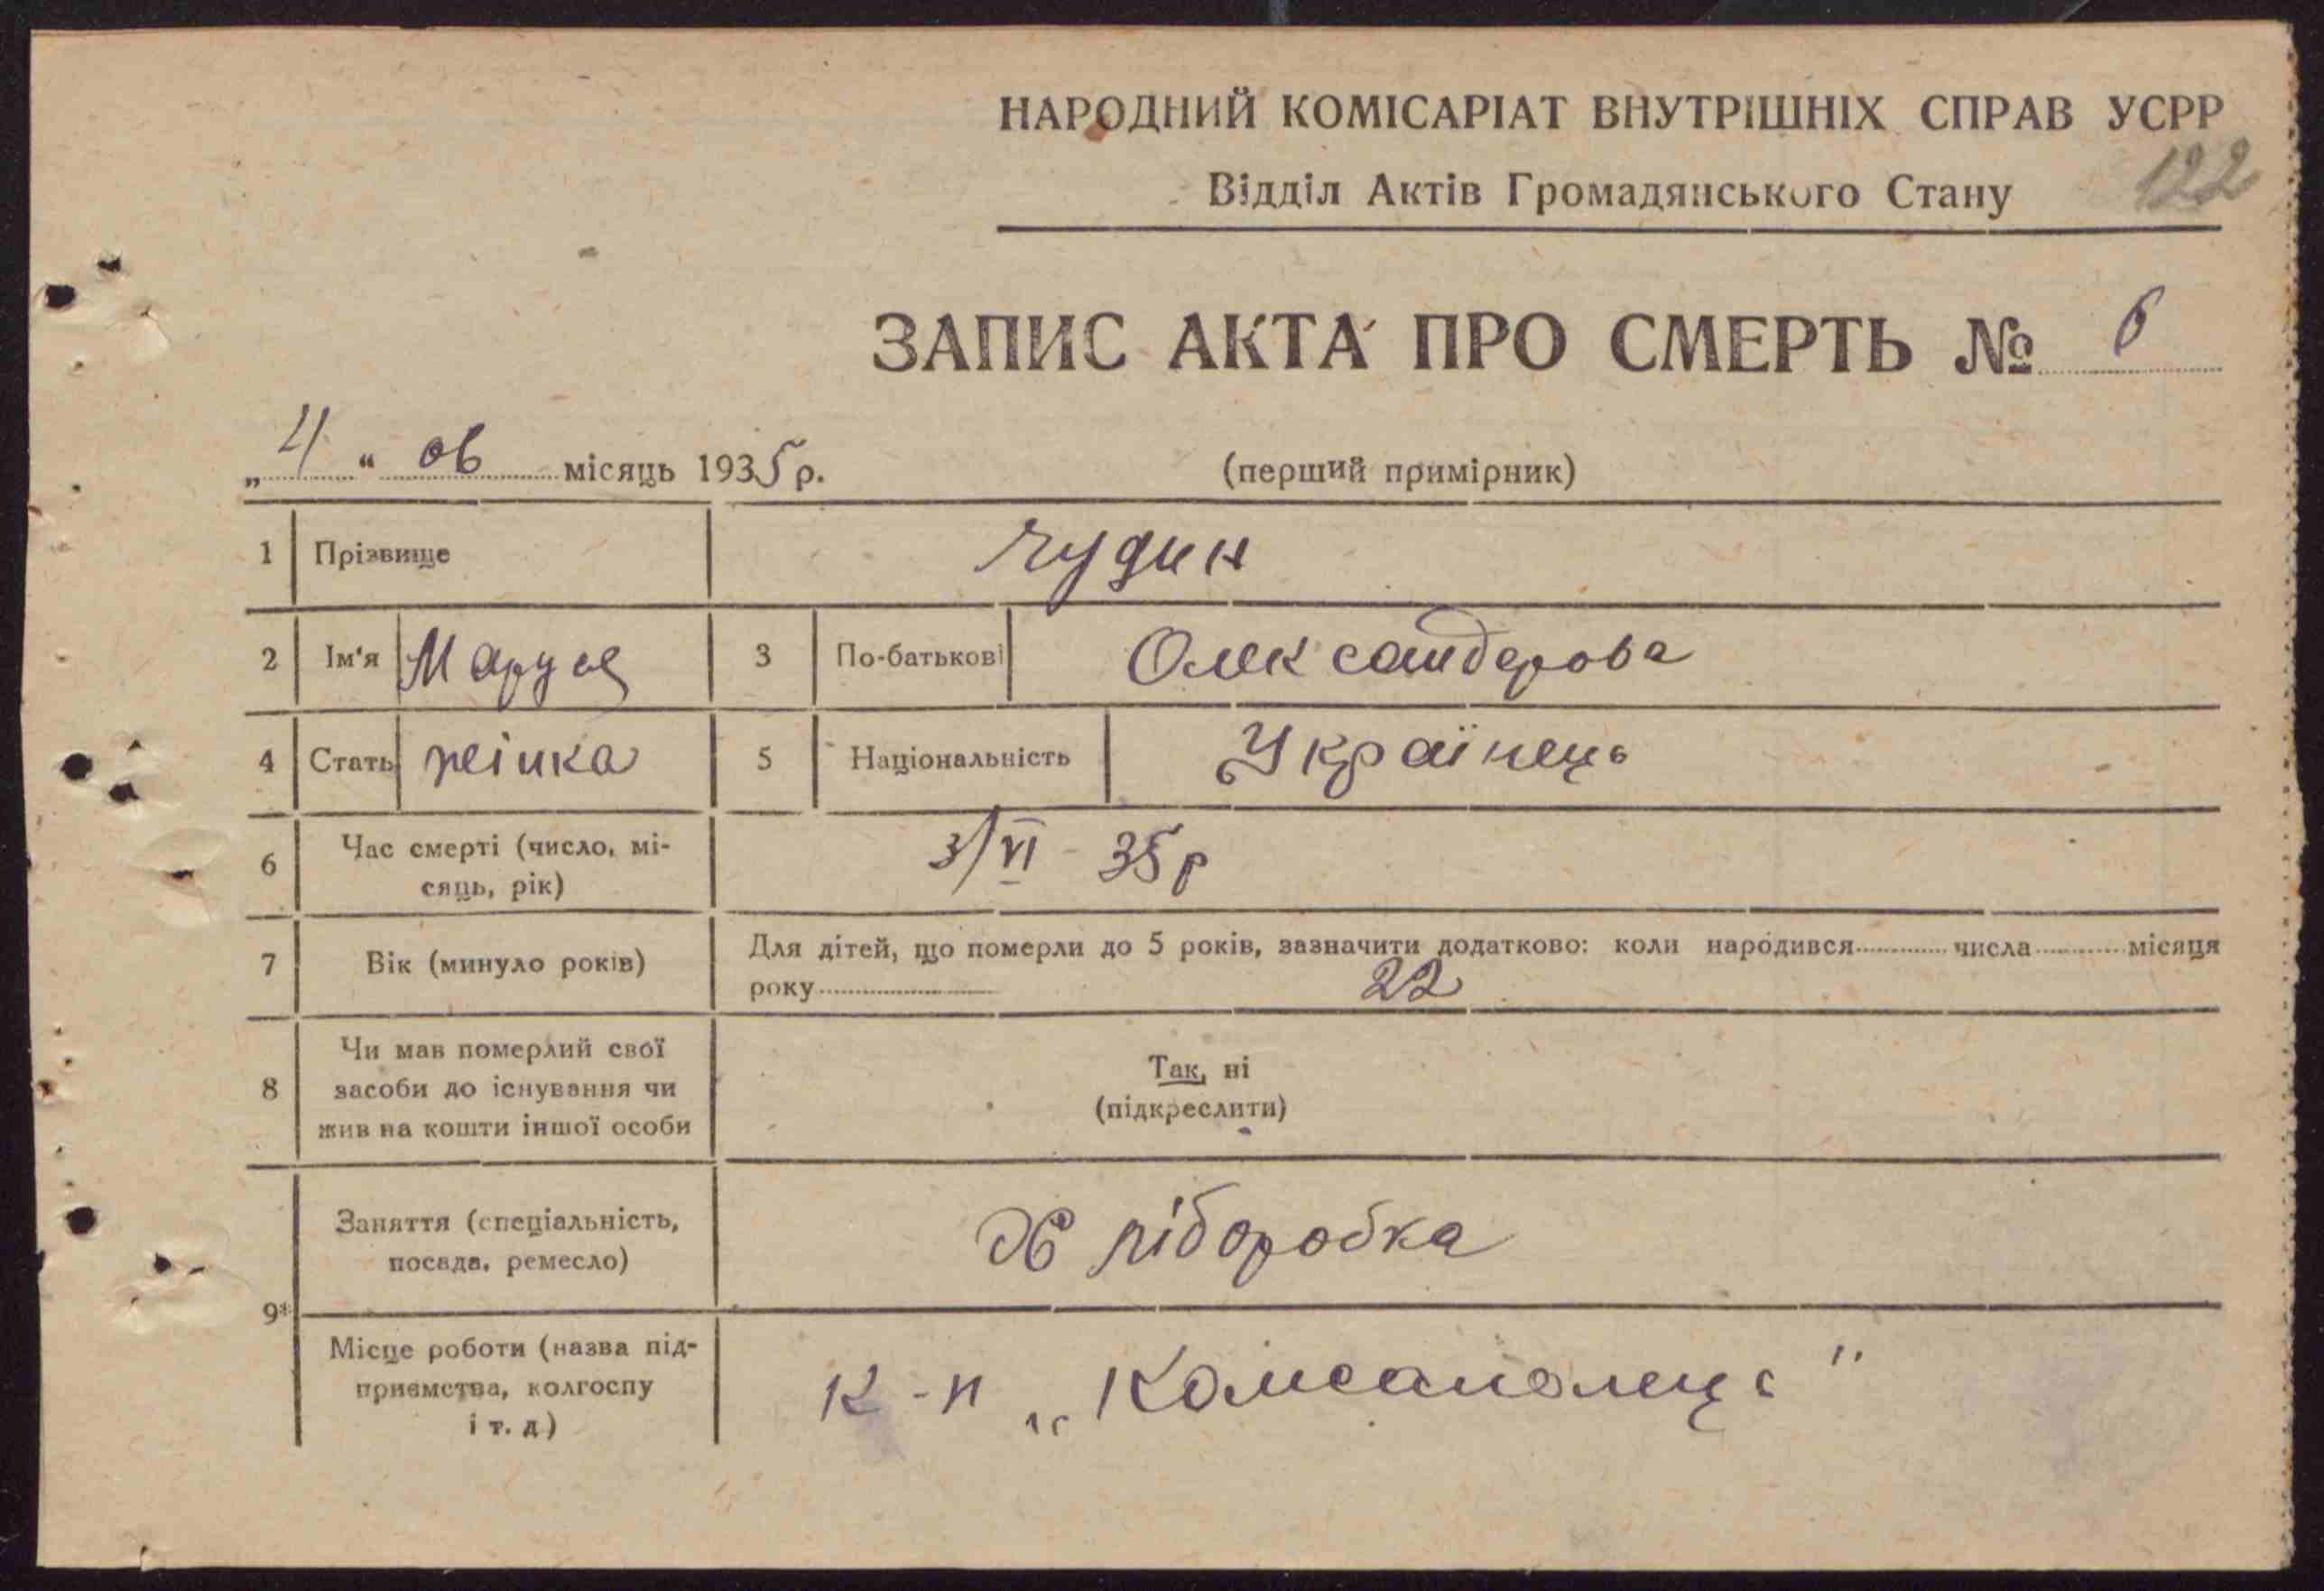 НАРОДНИЙ КОМІСАРІАТ ВНУТРІШНІХ СПРАВ УСРР
Відділ Актів Громадянського Стану 122
ЗАПИС АКТА ПРО СМЕРТЬ № 6
„4“ 06 місяць 1935 р. (перший примірник)
1 Прізвище Чудин
2 Ім'я Маруся 3 По-батькові Олександерова
4 Стать жінка 5 Національність Українець
6 Час смерті (число, мі-
сяць, рік) 3/VI - 35 р
7 Вік (минуло років) Для дітей, що померли до 5 років, зазначити додатково: коли народився числа місяця
року 22
8 Чи мав померлий свої
засоби до існування чи
жив на кошти іншої особи
Так, ні
(підкреслити)
9* Заняття (спеціальність,
посада, ремесло) Хліборобка
Місце роботи (назва під-
приємства, колгоспу
і т. д)
к-п „Комсамолець"